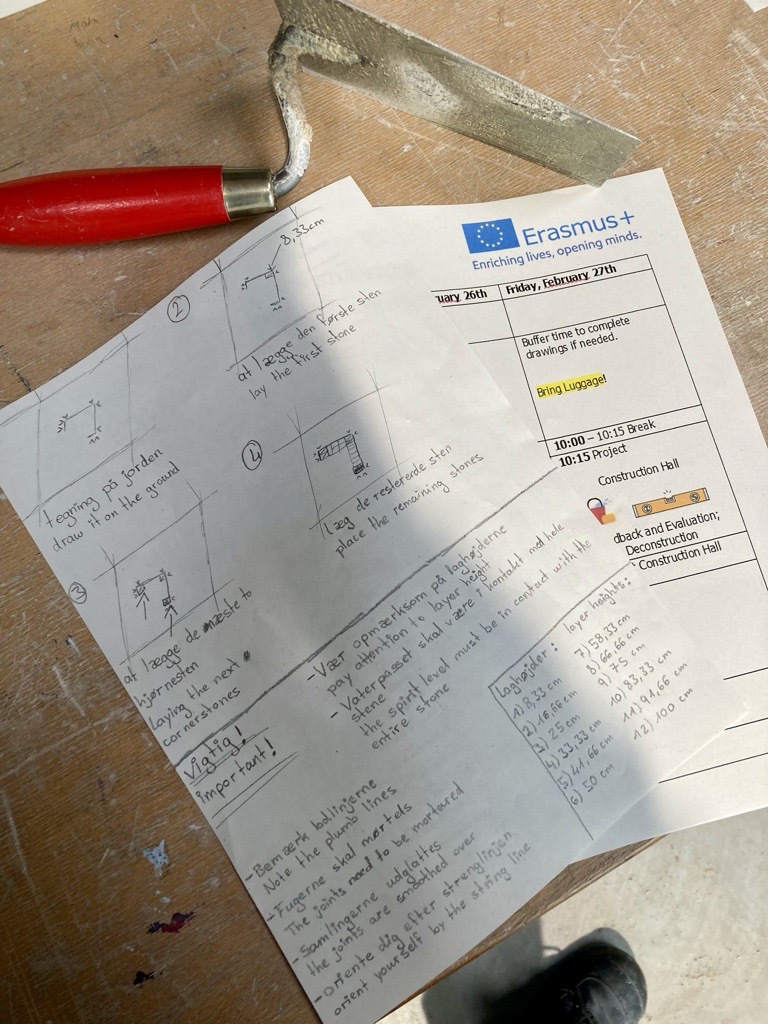 tegning på jorden
draw it on the ground
2
8,33cm
at lægge den første sten
lay the first stone
3
at lægge de næste to
hjørnesten
laying the next
cornerstones
4
læg de resterende sten
place the remaining stones
vigtig!
important!
- Vær opmærksom på laghøjderne
pay attention to layer height
- Vaterpasset skal være i kontakt med hele
stene
the spirit level must be in contact with the
entire stone
- Bemærk
Note the plumb lines
- Fugerne skal mørtels
The joints need to be mortared
- Samlingerne udglattes
the joints are smoothed over
- Oriente dig efter strenglinjen
orient yourself by the string line
Laghøjder: layer heights:
1) 8,33 cm
2) 16,66 cm
3) 25 cm
4) 33,33 cm
5) 41,66 cm
6) 50 cm
7) 58,33 cm
8) 66,66 cm
9) 75 cm
10) 83,33 cm
11) 91,66 cm
12) 100 cm
Erasmus+
Enriching lives, opening minds.
uary 26th
Friday, February 27th
Buffer time to complete
drawings if needed.
Bring Luggage!
10:00 – 10:15 Break
10:15 Project
Construction Hall
dback and Evaluation;
Deconstruction
Construction Hall